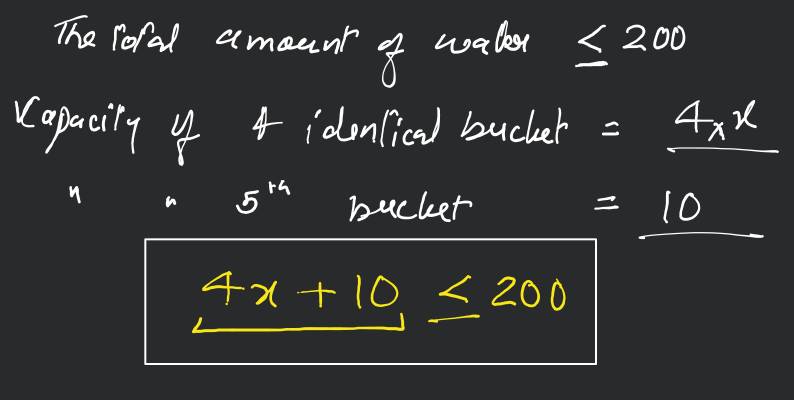 The total amount of water ≤ 200
Kapacity of 4 identical bucket = 4 × x
" " 5th bucket = 10
4x + 10 ≤ 200